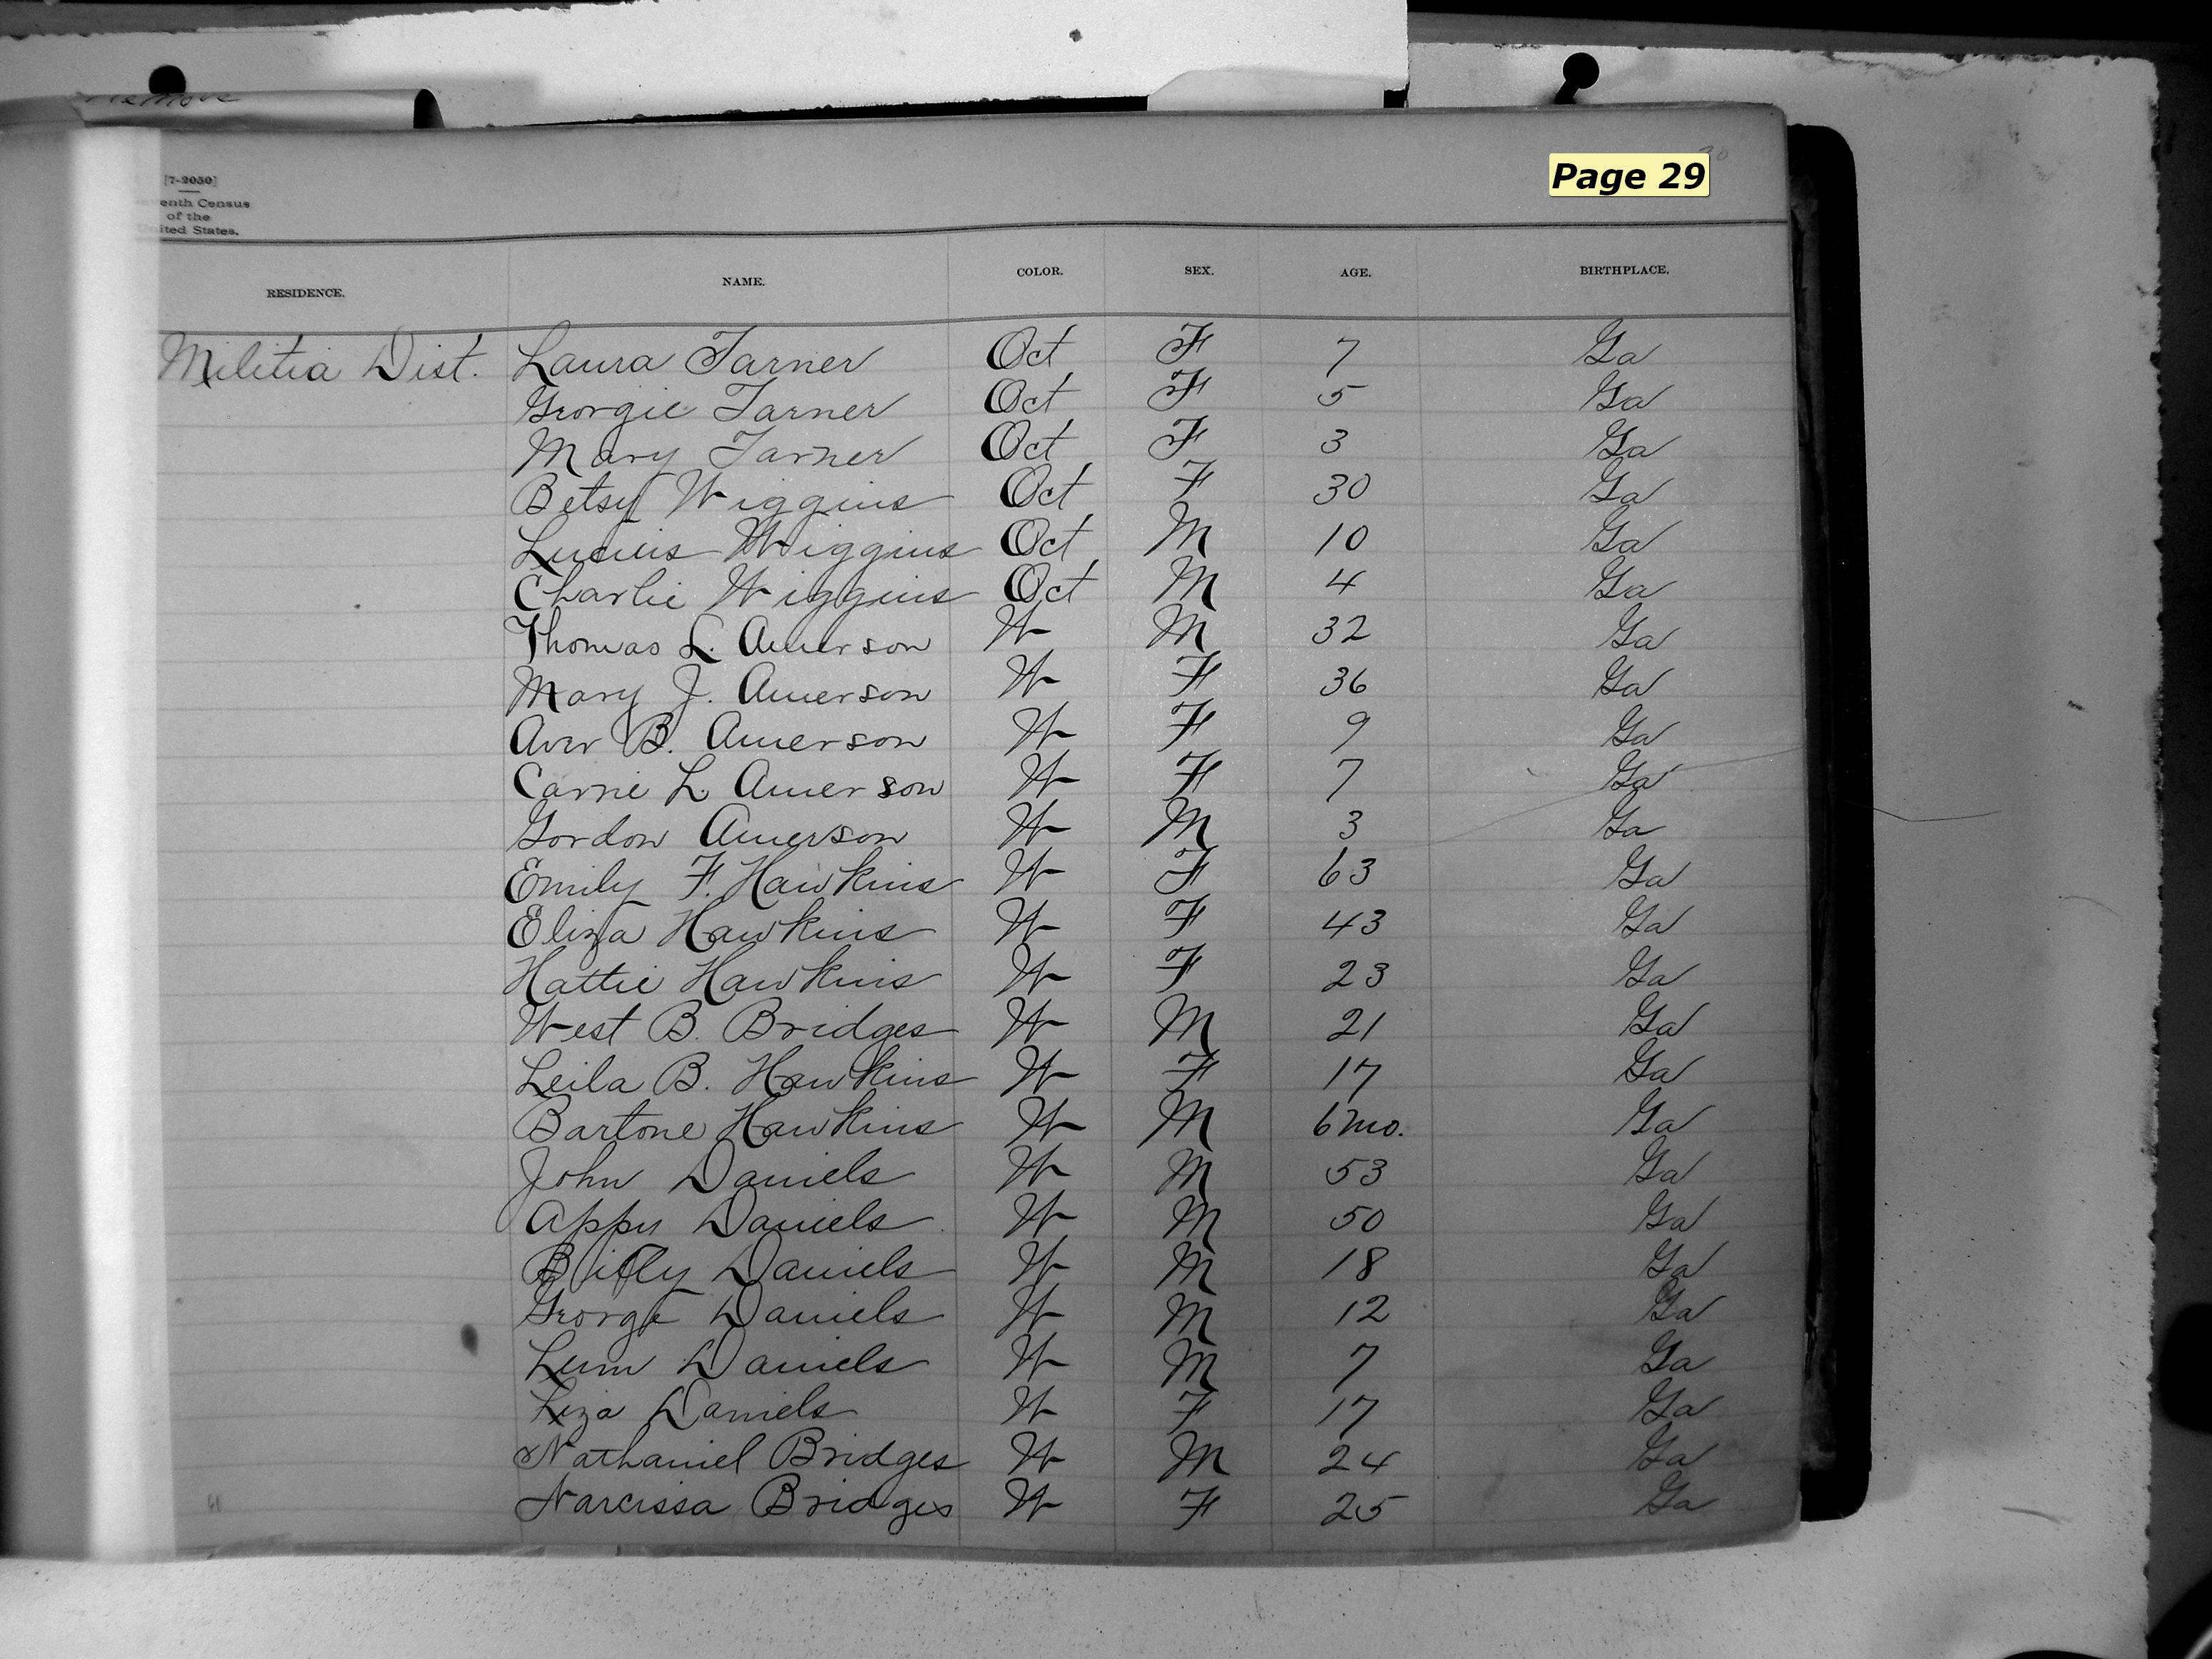 Remove
Page 29
[7-2050]
enth Census
of the
United States.
RESIDENCE. NAME. COLOR. SEX. AGE. BIRTHPLACE.
Militia Dist. Laura Tarner Oct F 7 Ga
Georgie Tarner Oct F 5 Ga
Mary Tarner Oct F 3 Ga
Betsy Wiggins Oct F 30 Ga
Lucius Wiggins Oct M 10 Ga
Charlie Wiggins Oct M 4 Ga
Thomas L. Amerson W M 32 Ga
Mary J. Amerson W F 36 Ga
Aver B. Amerson W F 9 Ga
Carrie L Amerson W F 7 Ga
Gordon Amerson W M 3 Ga
Emily F. Hawkins W F 63 Ga
Eliza Hawkins W F 43 Ga
Hattie Hawkins W F 23 Ga
West B. Bridges W M 21 Ga
Leila B. Hawkins W F 17 Ga
Bartone Hawkins W M 6 mo. Ga
John Daniels W M 53 Ga
Appy Daniels W M 50 Ga
Billy Daniels W M 18 Ga
George Daniels W M 12 Ga
Lum Daniels W M 7 Ga
Liza Daniels W F 17 Ga
Nathaniel Bridges W M 24 Ga
Narcissa Bridges W F 25 Ga